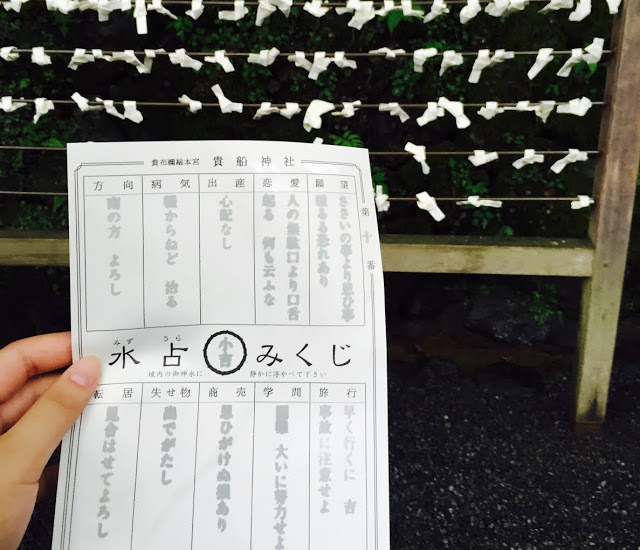 貴布禰総本宮 貴船神社
第十番
願望
ささいの事より思ひ事
破るる恐れあり
恋愛
人の無駄口より口舌
起る 何も云ふな
出産
心配なし
病気
軽からねど 治る
方向
南の方 よろし
みず うら
水占みくじ
小吉
境内の御神水に
静かに浮かべて下さい
旅行
早く行くに 吉
事故に注意せよ
学問
大いに努力せよ
商売
思ひがけぬ損あり
失せ物
出でがたし
転居
見合はせてよろし